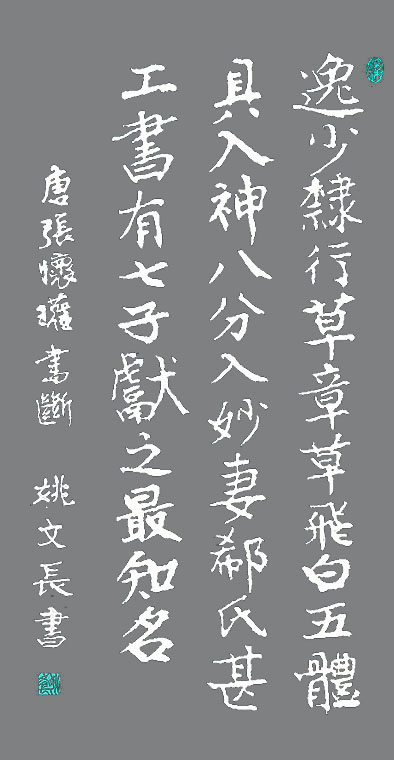 逸少隸行草章草飛白五體
具入神八分入妙妻郗氏甚
工書有七子獻之最知名
唐張懷瓘書斷 姚文長書